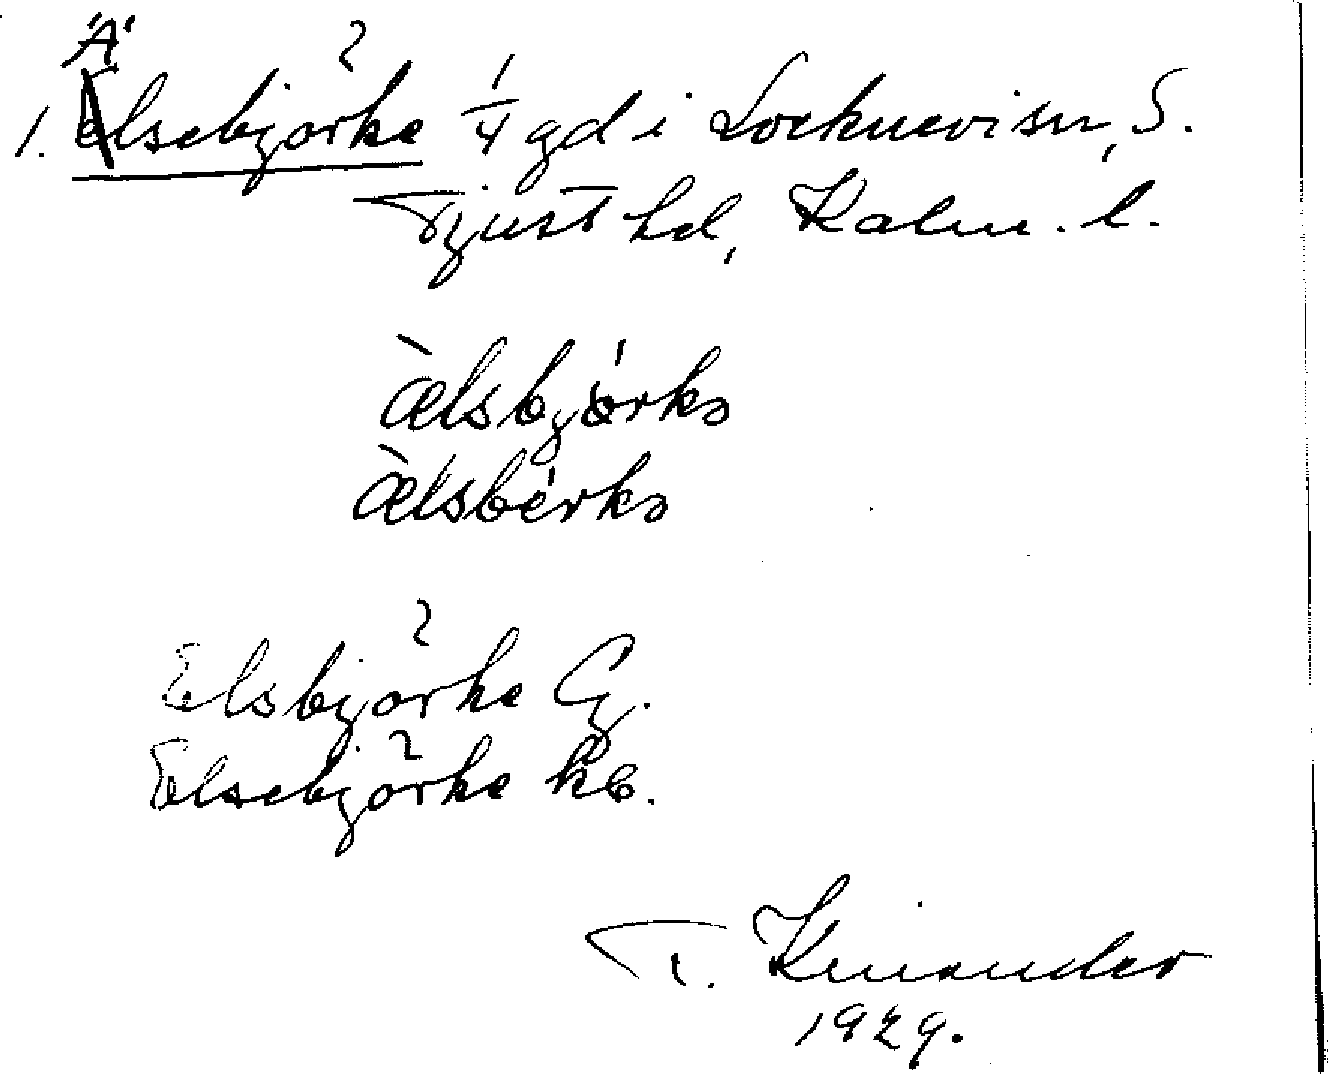 1. Älsebjörke 1/4 gd i Locknevi sn, S.
Tjust hd, Kalm. l.
æ̀lsbjórkə
æ̀lsbérkə
Elsbjörke G.
Elsebjörke kb.
T. Kinander
1929.